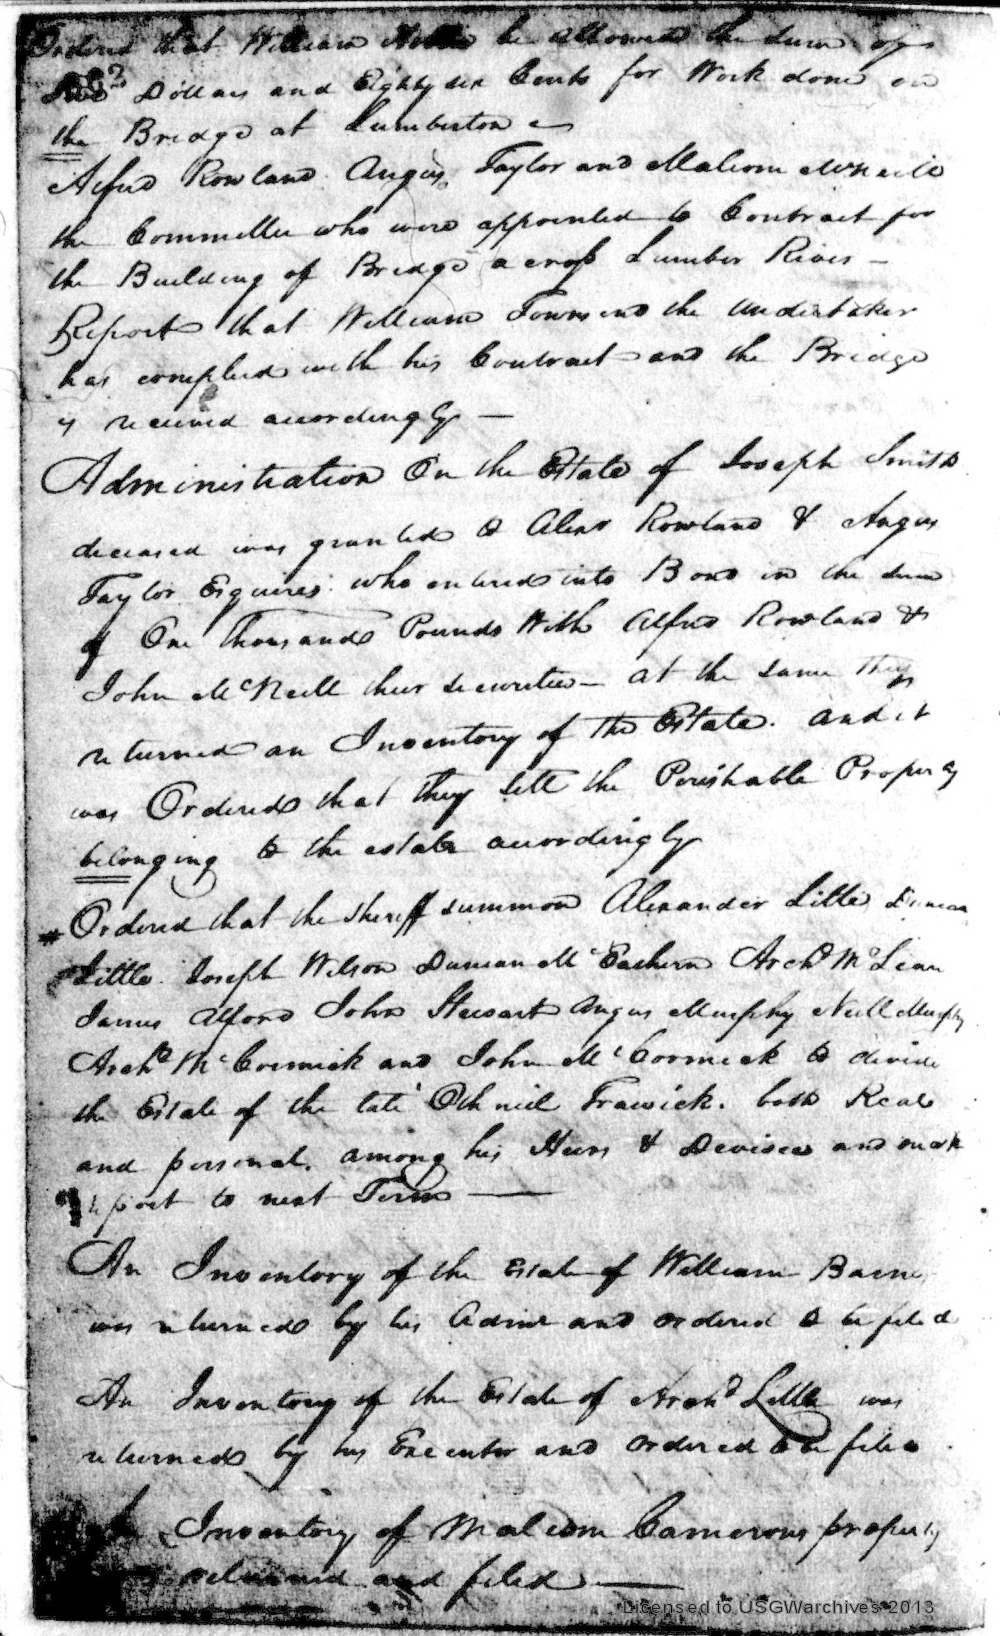 Ordered that William be allowed the sum of
Dollars and Eighty six Cents for Work done on
the Bridge at Lumberton
Alfred Rowland Angus Taylor and Malcom McNeill
the Committee who were appointed to Contract for
the Building of Bridge across Lumber River —
Report that William Townsend the undertaker
has complied with his Contract and the Bridge
is received accordingly —
Administration On the Estate of Joseph Smith
deceased was granted to Alexr Rowland & Angus
Taylor Esquires who entered into Bond in the sum
of One thousand Pounds With Alfred Rowland &
John McNeill their securities — at the same they
returned an Inventory of the Estate. and it
was Ordered that they sell the Perishable Property
belonging to the estate accordingly
Ordered that the Sheriff summon Alexander Little Duncan
Little Joseph Wilson Duncan McEachern Archd McLean
James Alford John Stewart Angus Murphy Neill Murphy
Archd McCormick and John McCormick to divide
the Estate of the late Othneil Trawick. both Real
and personal. among his Heirs & Devisees and make
report to next Term —
An Inventory of the Estate of William Barnes
was returned by his Admr and ordered to be filed
An Inventory of the Estate of Archd Little was
returned by his Executor and ordered to be filed
An Inventory of Malcom Camerons property
returned and filed —
Licensed to USGWarchives 2013